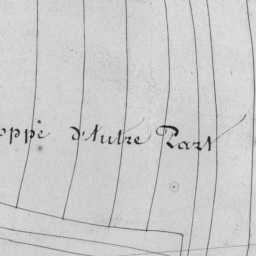 oppé d'Autre Part